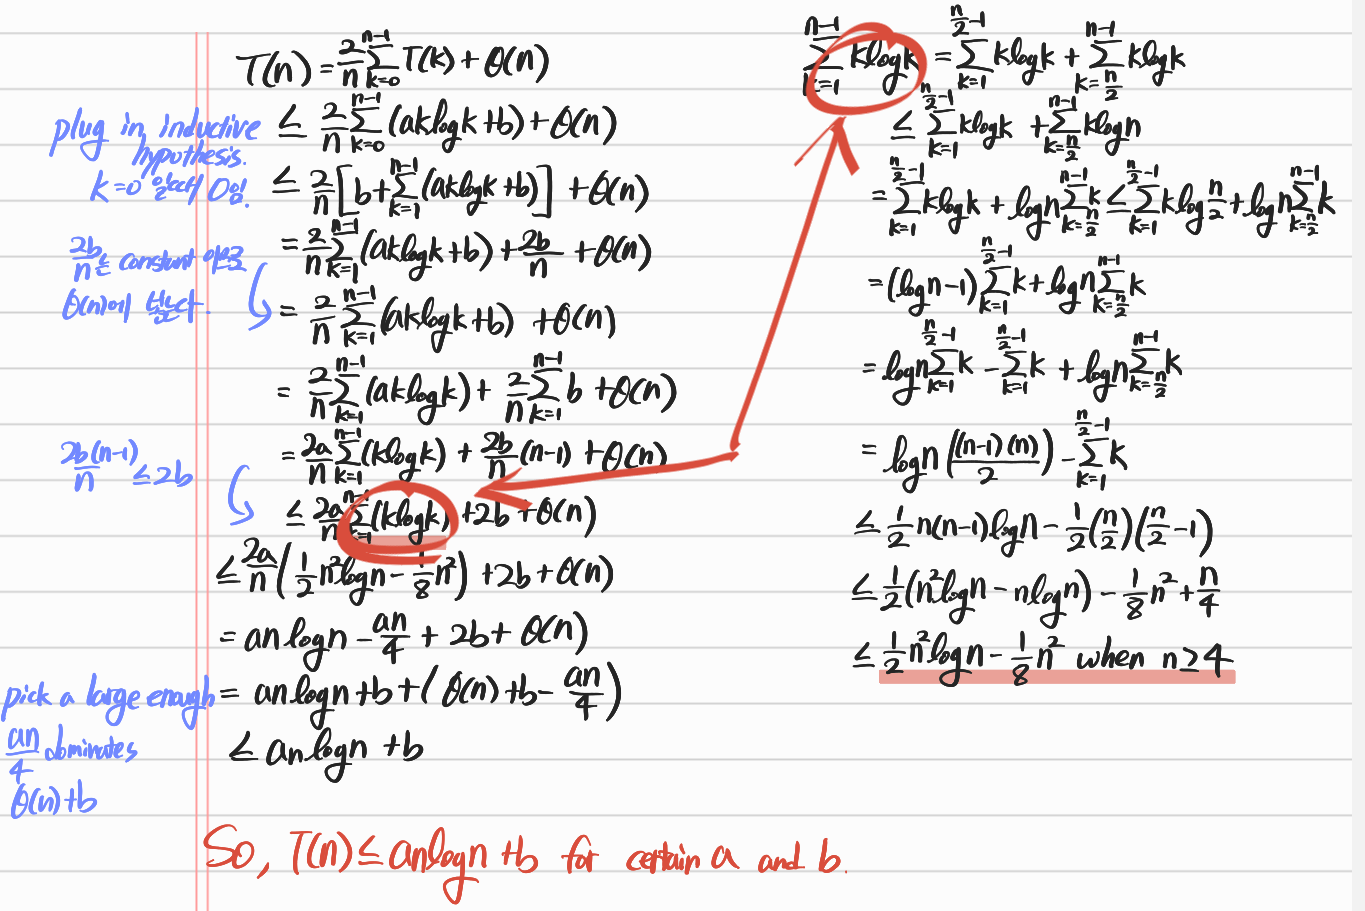 T(n) = 2/n Σ_{k=0}^{n-1} T(k) + Θ(n)
plug in inductive
hypothesis.
≤ 2/n Σ_{k=0}^{n-1} (aklogk+b) + Θ(n)
k=0
≤ 2/n [b+Σ_{k=1}^{n-1} (aklogk+b)] + Θ(n)
= 2/n Σ_{k=1}^{n-1} (aklogk+b) + 2b/n + Θ(n)
2b/n constant
Θ(n)
= 2/n Σ_{k=1}^{n-1} (aklogk+b) + Θ(n)
= 2/n Σ_{k=1}^{n-1} (aklogk) + 2/n Σ_{k=1}^{n-1} b + Θ(n)
= 2a/n Σ_{k=1}^{n-1} (klogk) + 2b/n (n-1) + Θ(n)
2b(n-1)/n ≤ 2b
≤ 2a/n Σ_{k=1}^{n-1} (klogk) + 2b + Θ(n)
≤ 2a/n (1/2 n²logn - 1/8 n²) + 2b + Θ(n)
= anlogn - an/4 + 2b + Θ(n)
= anlogn + b + (Θ(n) + b - an/4)
pick a large enough
an/4 dominates
Θ(n)+b
≤ anlogn + b
Σ_{k=1}^{n-1} klogk = Σ_{k=1}^{n/2-1} klogk + Σ_{k=n/2}^{n-1} klogk
≤ Σ_{k=1}^{n/2-1} klogk + Σ_{k=n/2}^{n-1} klogn
= Σ_{k=1}^{n/2-1} klogk + logn Σ_{k=n/2}^{n-1} k ≤ Σ_{k=1}^{n/2-1} klog n/2 + logn Σ_{k=n/2}^{n-1} k
= (logn-1) Σ_{k=1}^{n/2-1} k + logn Σ_{k=n/2}^{n-1} k
= logn Σ_{k=1}^{n/2-1} k - Σ_{k=1}^{n/2-1} k + logn Σ_{k=n/2}^{n-1} k
= logn ((n-1)(n)/2) - Σ_{k=1}^{n/2-1} k
≤ 1/2 n(n-1)logn - 1/2 (n/2)(n/2 - 1)
≤ 1/2 (n²logn - nlogn) - 1/8 n² + n/4
≤ 1/2 n²logn - 1/8 n² when n≥4
So, T(n) ≤ anlogn + b for certain a and b.